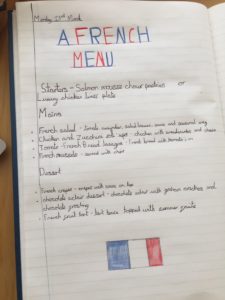 Monday 23rd March
A FRENCH
MENU
Starters - Salmon mousse choux pastries or
Luxury chicken liver plate
Mains
French salad - tomato mozzarella, salad leaves, and
Chicken and Zucchini - chicken with and cheese
Tomato French Bread lasagne - French bread with tomato's on
French mussels - served with
Dessert
French crepe - crepes with on top
chocolate eclair dessert - chocolate eclair with graham crackers and
chocolate frosting
French fruit tart - tart topped with summer fruits